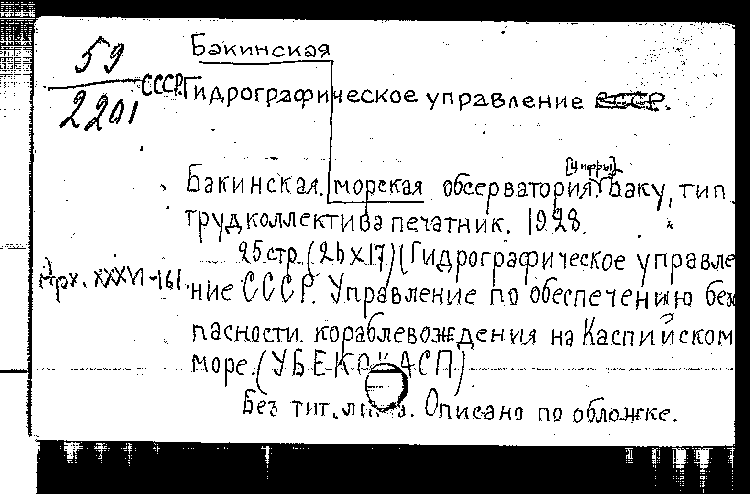 Бакинская
59
2201
СССР. Гидрографическое управление СССР.
[Цифры]
Бакинская морская обсерватория. Баку, тип.
труд коллектива печатник. 1928.
25 стр. (26 x 17) (Гидрографическое управле
Арх. XXXVI-161.
ние СССР. Управление по обеспечению без
пасности кораблевождения на Каспийском
море. (УБЕКОКАСП)
Без тит. листа. Описано по обложке.